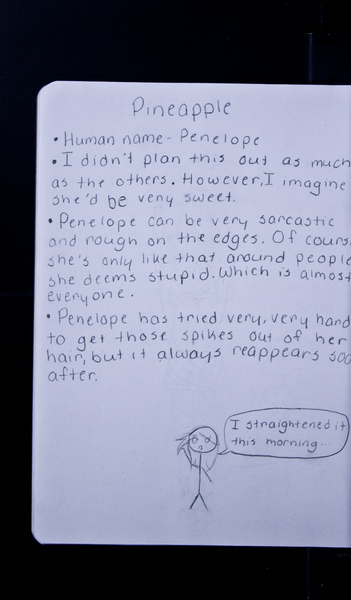 Pineapple
• Human name - Penelope
• I didn't plan this out as much
as the others. However, I imagine
she'd be very sweet.
• Penelope can be very sarcastic
and rough on the edges. Of cours
she's only like that around people
she deems stupid. Which is almost
everyone.
• Penelope has tried very, very hard
to get those spikes out of her
hair, but it always reappears soo
after.
I straightened it
this morning...